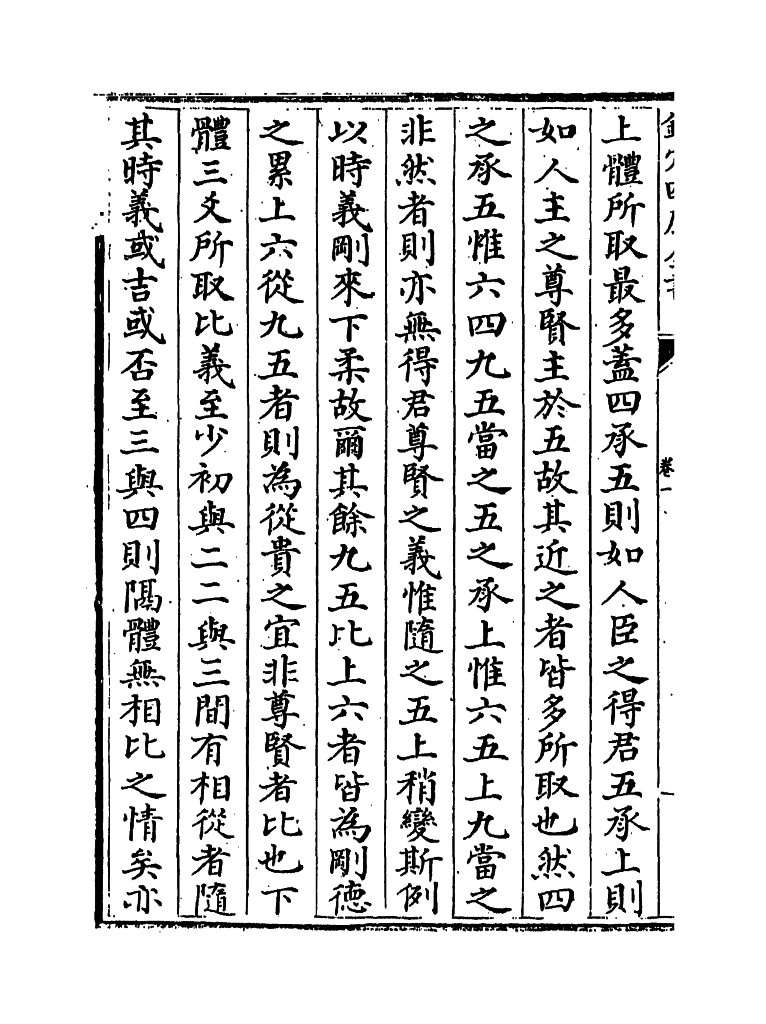 欽定四庫全書
卷一
上體所取最多蓋四承五則如人臣之得君五承上則
如人主之尊賢主於五故其近之者皆多所取也然四
之承五惟六四九五當之五之承上惟六五上九當之
非然者則亦無得君尊賢之義惟隨之五上稍變斯例
以時義剛來下柔故爾其餘九五比上六者皆為剛德
之累上六從九五者則為從貴之宜非尊賢者比也下
體三爻所取比義至少初與二二與三間有相從者隨
其時義或吉或否至三與四則隔體無相比之情矣亦